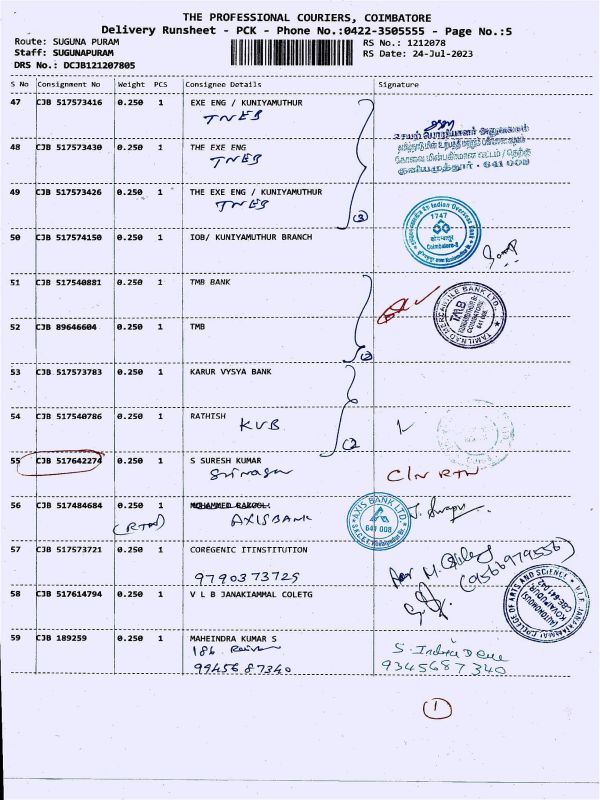 THE PROFESSIONAL COURIERS, COIMBATORE
Delivery Runsheet - PCK - Phone No.:0422-3505555 - Page No.:5
Route: SUGUNA PURAM
RS No.: 1212078
Staff: SUGUNAPURAM
RS Date: 24-Jul-2023
DRS No.: DCJB121207805
S No Consignment No Weight PCS Consignee Details Signature
47 CJB 517573416 0.250 1 EXE ENG / KUNIYAMUTHUR
TNEB
48 CJB 517573430 0.250 1 THE EXE ENG
TNEB
குனியமுத்தூர் - 641 008
49 CJB 517573426 0.250 1 THE EXE ENG / KUNIYAMUTHUR
TNEB
(3)
Indian Overseas Bank
1747
Coimbatore-8
50 CJB 517574150 0.250 1 IOB/ KUNIYAMUTHUR BRANCH
51 CJB 517540881 0.250 1 TMB BANK
TAMILNAD MERCANTILE BANK LTD.
TMB
COIMBATORE
641 008
52 CJB 89646604 0.250 1 TMB
(2)
53 CJB 517573783 0.250 1 KARUR VYSYA BANK
54 CJB 517540786 0.250 1 RATHISH
KVB
(2)
55 CJB 517642274 0.250 1 S SURESH KUMAR
C/N RTN
56 CJB 517484684 0.250 1 MOHAMMED
(RTN) AXIS BANK
AXIS BANK LTD.
641 008
57 CJB 517573721 0.250 1 COREGENIC ITINSTITUTION
9790373725
(9566979556)
58 CJB 517614794 0.250 1 V L B JANAKIAMMAL COLETG
V.L.B. JANAKIAMMAL COLLEGE OF ARTS AND SCIENCE
(AUTONOMOUS)
KOVAIPUDUR
CBE-641 042
59 CJB 189259 0.250 1 MAHEINDRA KUMAR S
186
S. Indra Devi
9945687340
9345687340
1